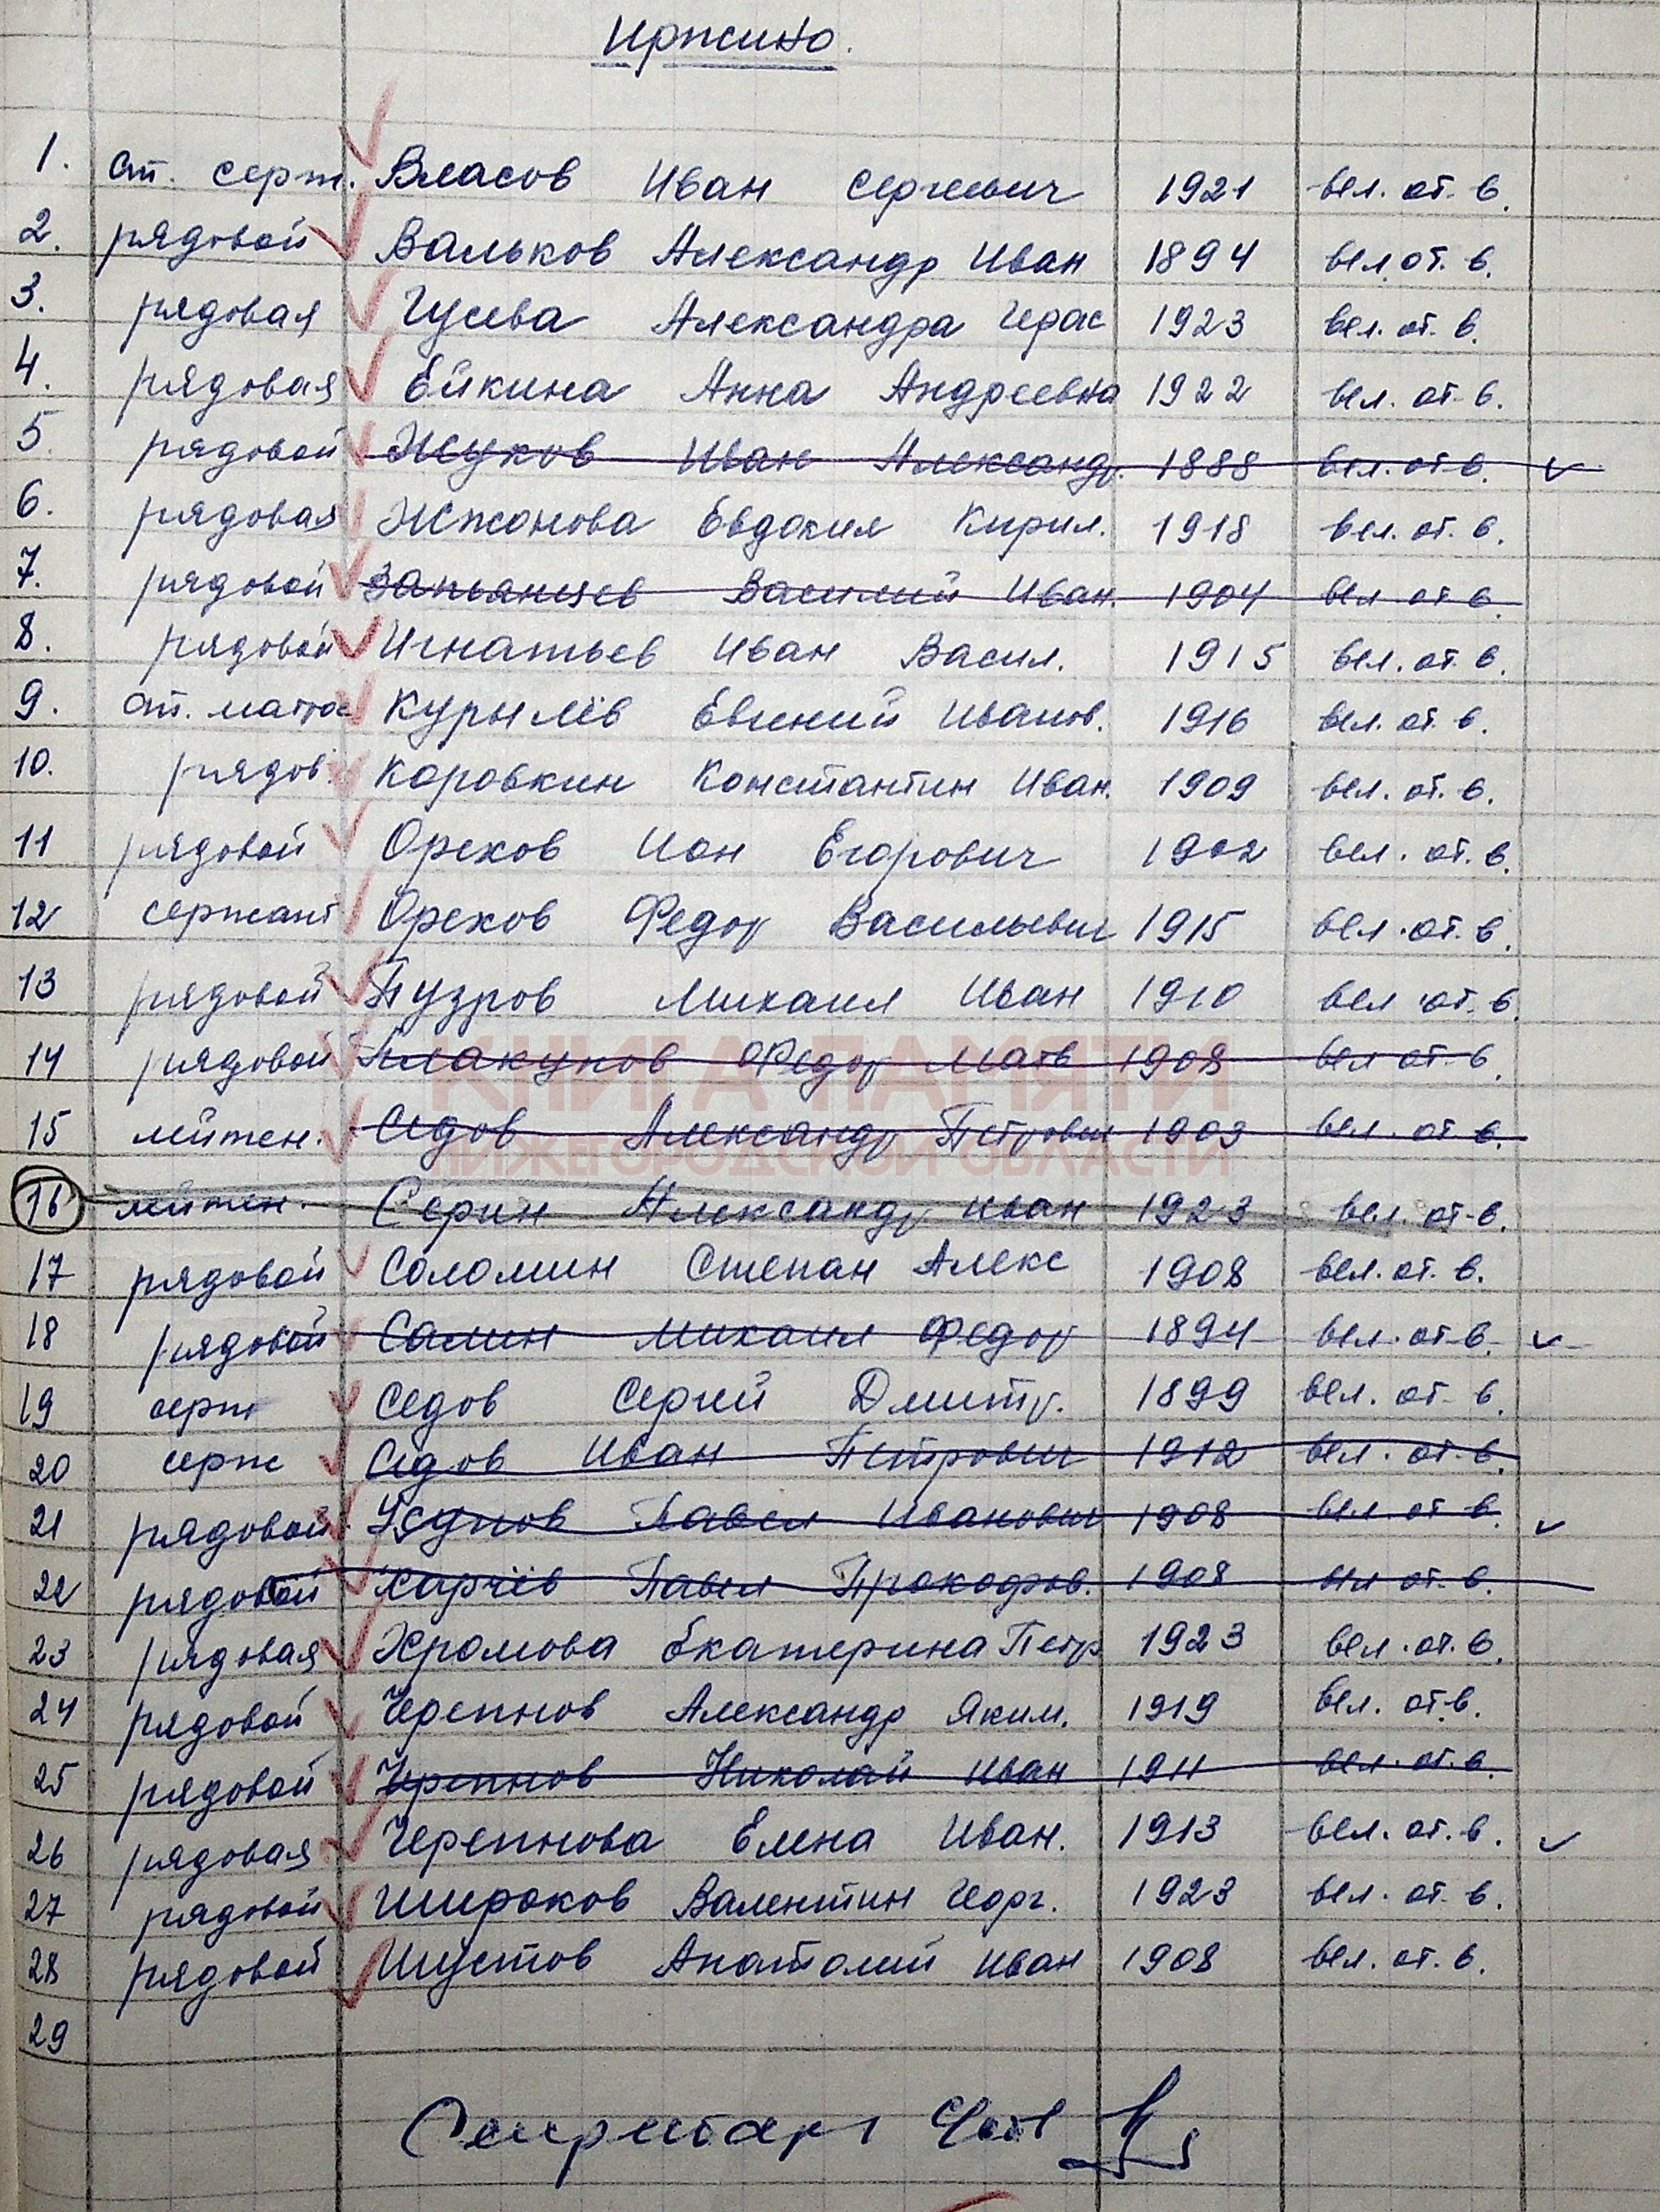 Иржино.
1. ст. серж. Власов Иван Сергеевич 1921 вел. от. в.
2. рядовой Вальков Александр Иван 1894 вел. от. в.
3. рядовая Гусева Александра Герас 1923 вел. от. в.
4. рядовая Ейкина Анна Андреевна 1922 вел. от. в.
5. рядовой Жуков Иван Александр. 1888 вел. от. в.
6. рядовая Жжонова Евдокия Кирил. 1918 вел. от. в.
7. рядовой Запьянцев Василий Иван. 1904 вел. от. в.
8. рядовой Игнатьев Иван Васил. 1915 вел. от. в.
9. ст. матро Курылёв Евгений Иванов. 1916 вел. от. в.
10. рядов. Коровкин Константин Иван. 1909 вел. от. в.
11 рядовой Орехов Ион Егорович 1902 вел. от. в.
12 сержант Орехов Федор Васильевич 1915 вел. от. в.
13 рядовой Пузров Михаил Иван 1910 вел от. в.
14 рядовой Федор Матв 1908 вел от. в.
КНИГА ПАМЯТИ
15 лейтен. Седов Александр Петрович 1903 вел. от. в.
НИЖЕГОРОДСКОЙ ОБЛАСТИ
16 лейтен. Серин Александр Иван 1923 вел. от. в.
17 рядовой Соломин Степан Алекс 1908 вел. от. в.
18 рядовой Салин Михаил Федор 1894 вел. от. в.
19 серж Седов Сергей Дмитр. 1899 вел. от. в.
20 серж Седов Иван Петрович 1912 вел. от. в.
21 рядовой Павел Иванович 1908 вел. от. в.
22 рядовой Харчёв Павел Прокофров. 1908 вел от. в.
23 рядовая Хромова Екатерина Петр 1923 вел. от. в.
24 рядовой Черепнов Александр Яким. 1919 вел. от. в.
25 рядовой Черепнов Николай Иван 1911 вел. от. в.
26 рядовая Черепнова Елена Иван. 1913 вел. от. в.
27 рядовой Широков Валентин Георг. 1923 вел. от. в.
28 рядовой Шустов Анатолий Иван 1908 вел. от. в.
29
Секретарь